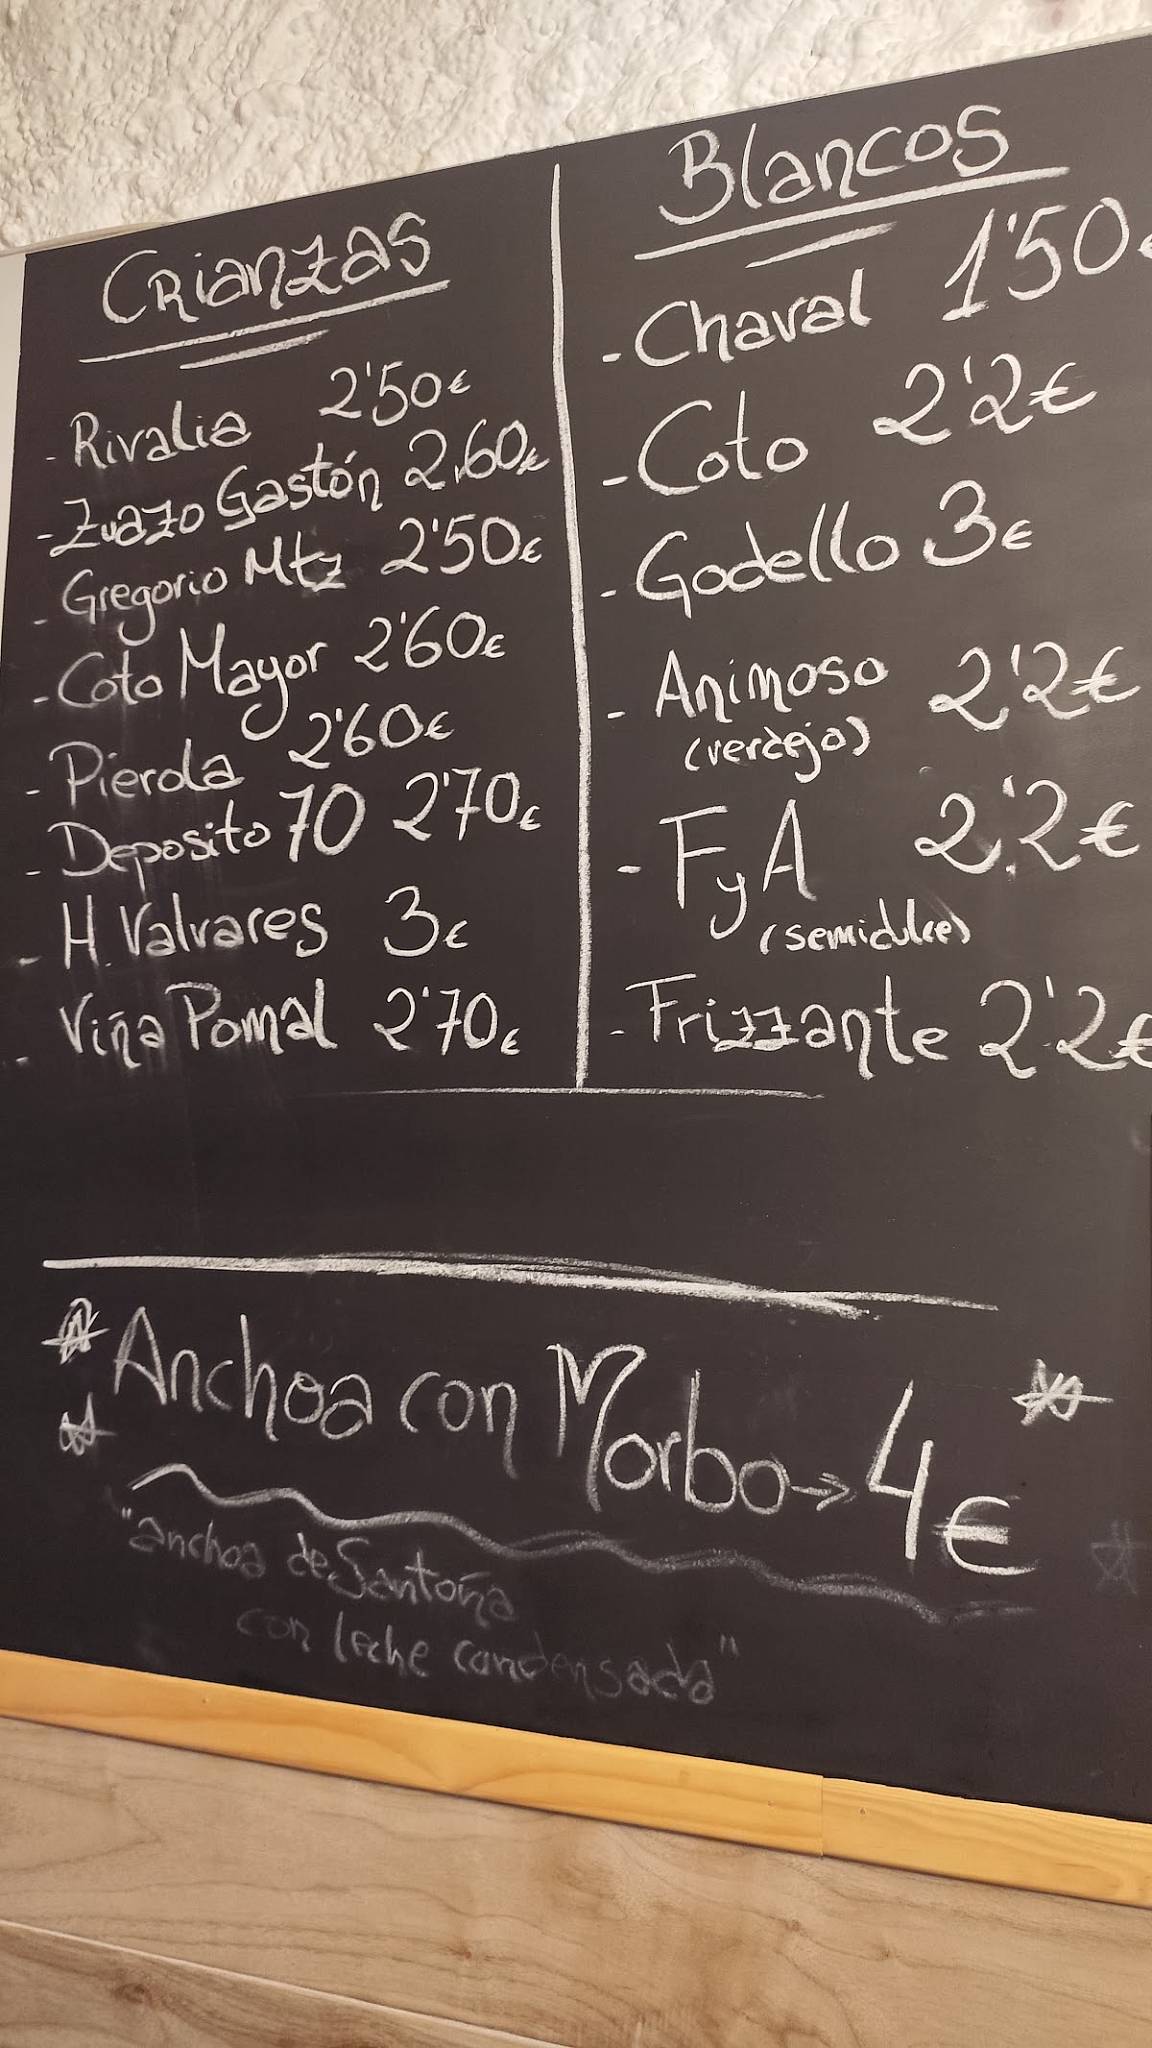 Crianzas
- Rivalia 2'50€
- Zuazo Gastón 2,60€
- Gregorio Mtz 2'50€
- Coto Mayor 2'60€
- Pierola 2'60€
- Deposito 70 2'70€
- H. Valvares 3€
- Viña Pomal 2'70€
Blancos
- Chaval 1'50€
- Coto 2'2€
- Godello 3€
- Animoso 2'2€
(verdejo)
- F y A 2'2€
(semidulce)
- Frizzante 2'2€
Anchoa con Morbo → 4€
"anchoa de Santoña
con leche condensada"